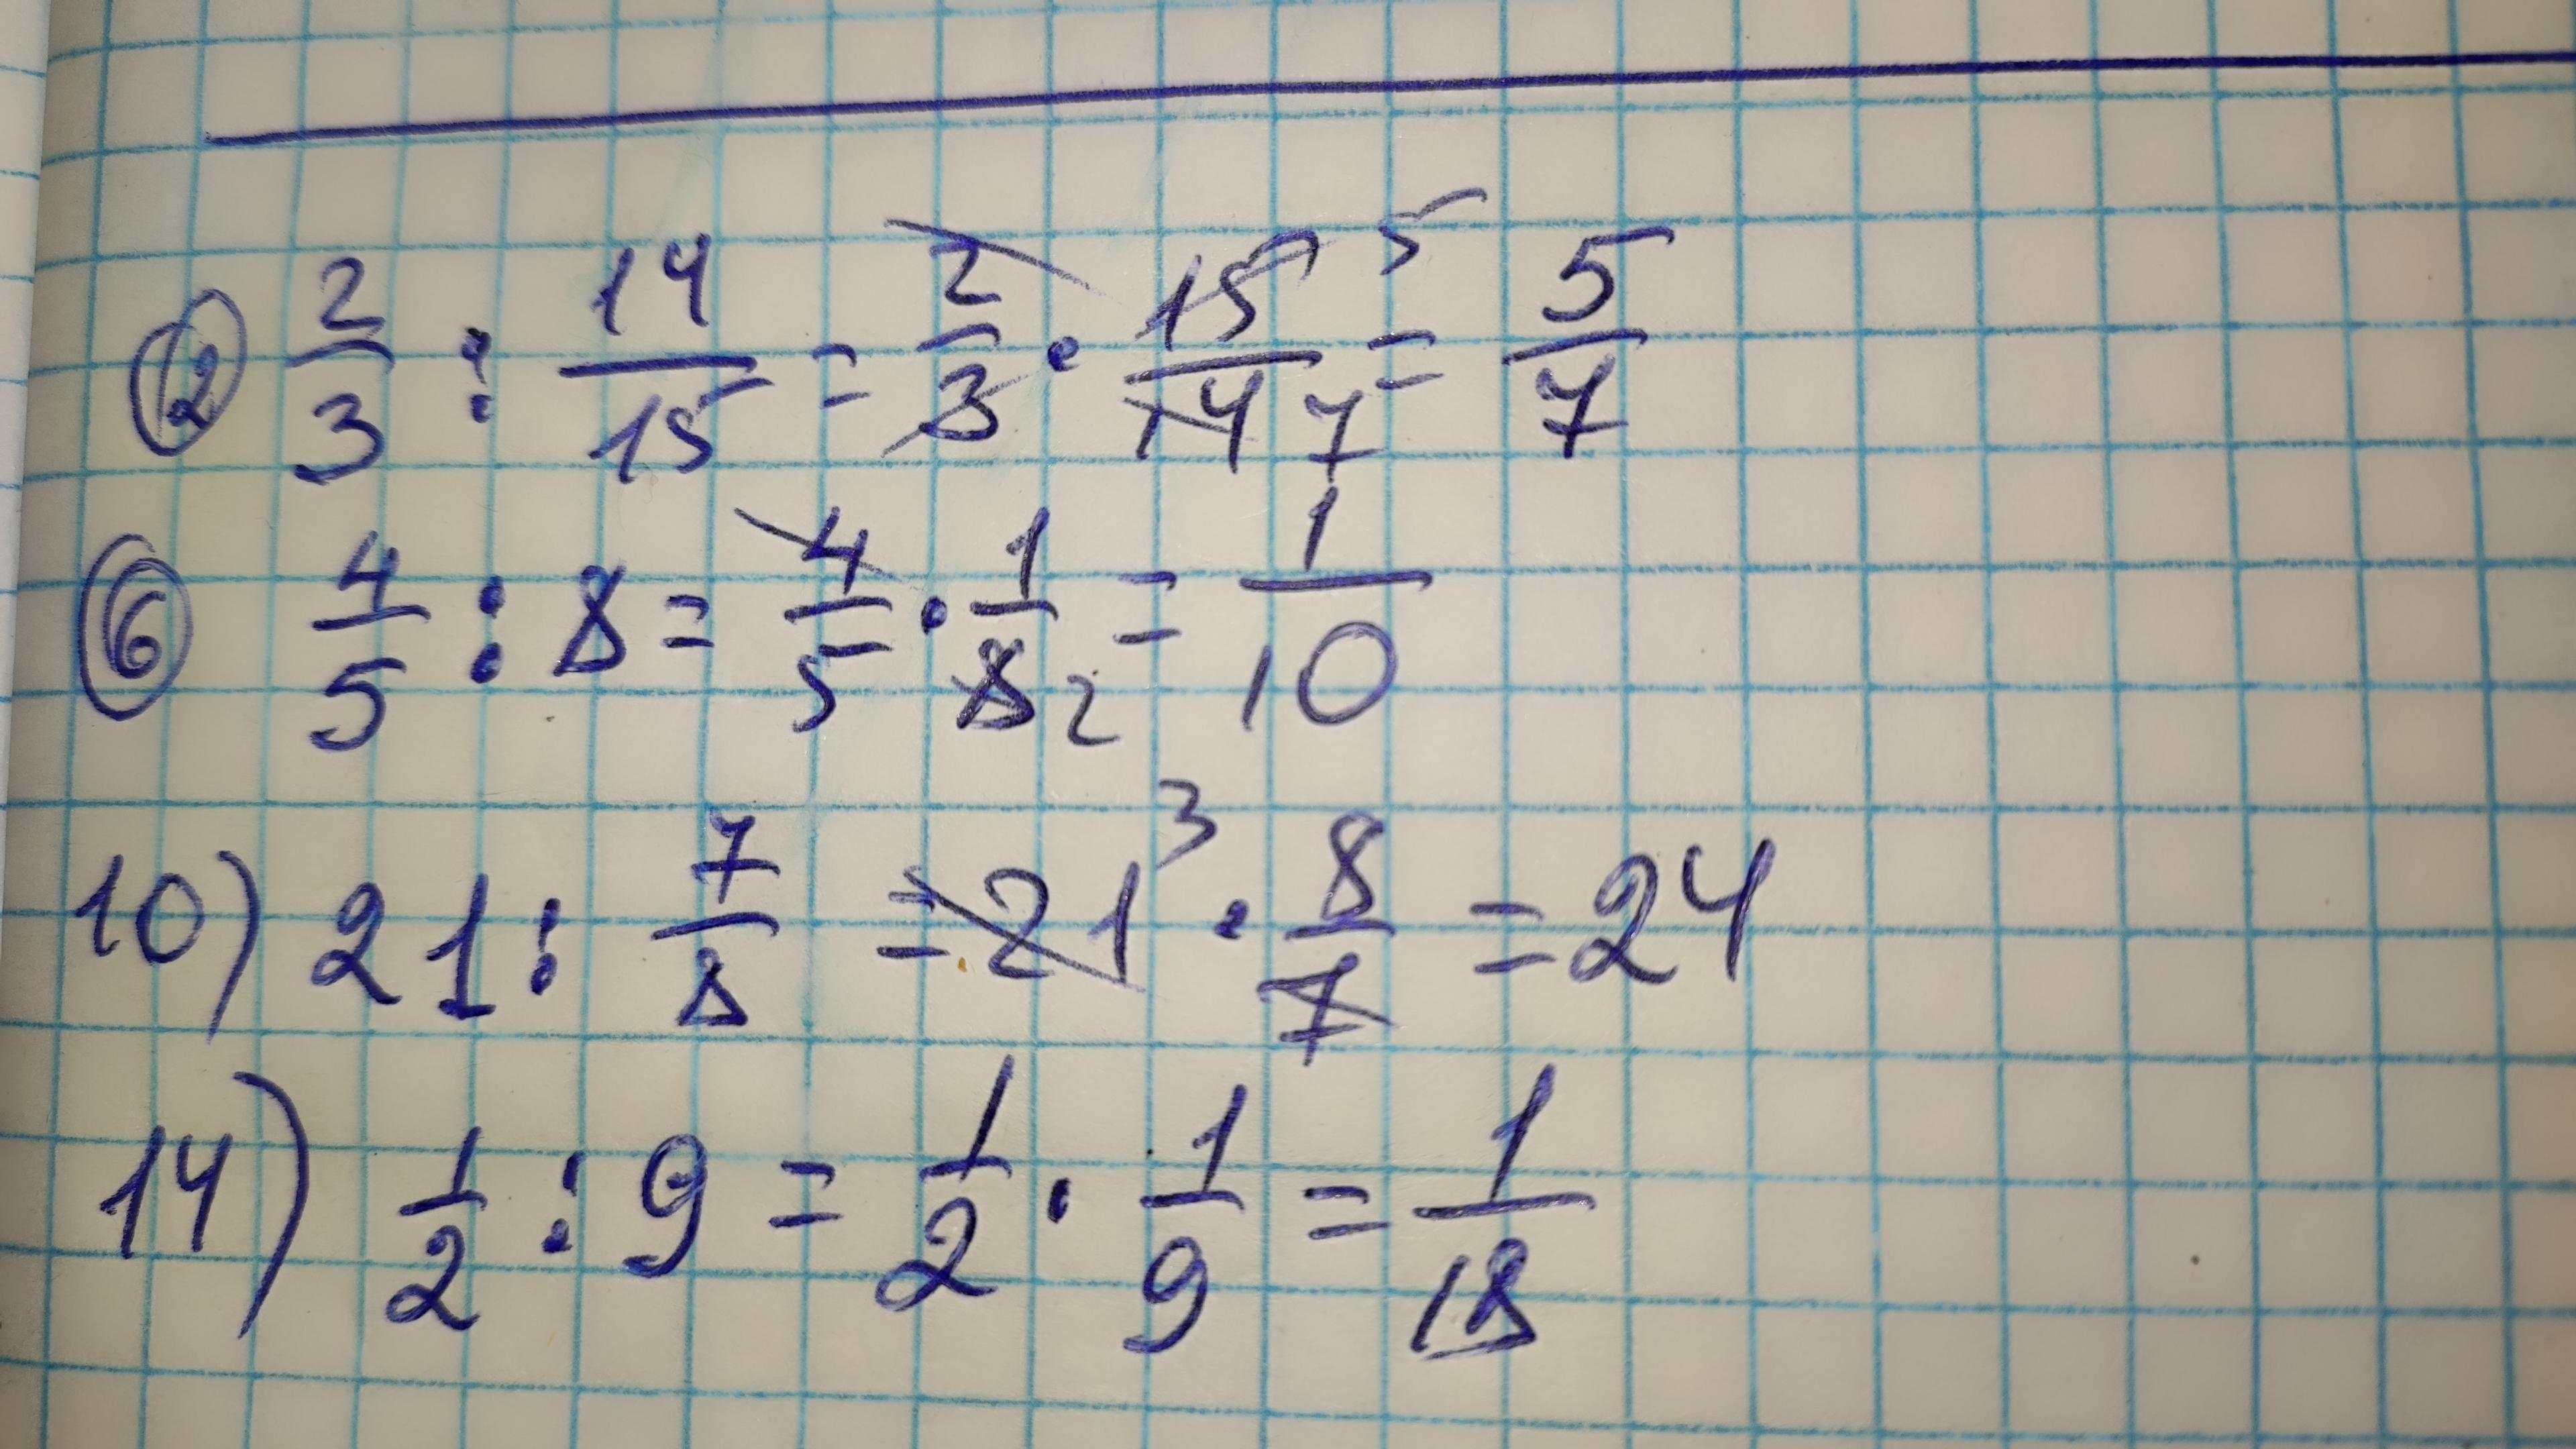 2 2/3 : 14/15 = 2/3 · 15/14 5 7 = 5/7
6 4/5 : 8 = 4/5 · 1/8 2 = 1/10
10) 21 : 7/8 = 21 3 · 8/7 = 24
14) 1/2 : 9 = 1/2 · 1/9 = 1/18